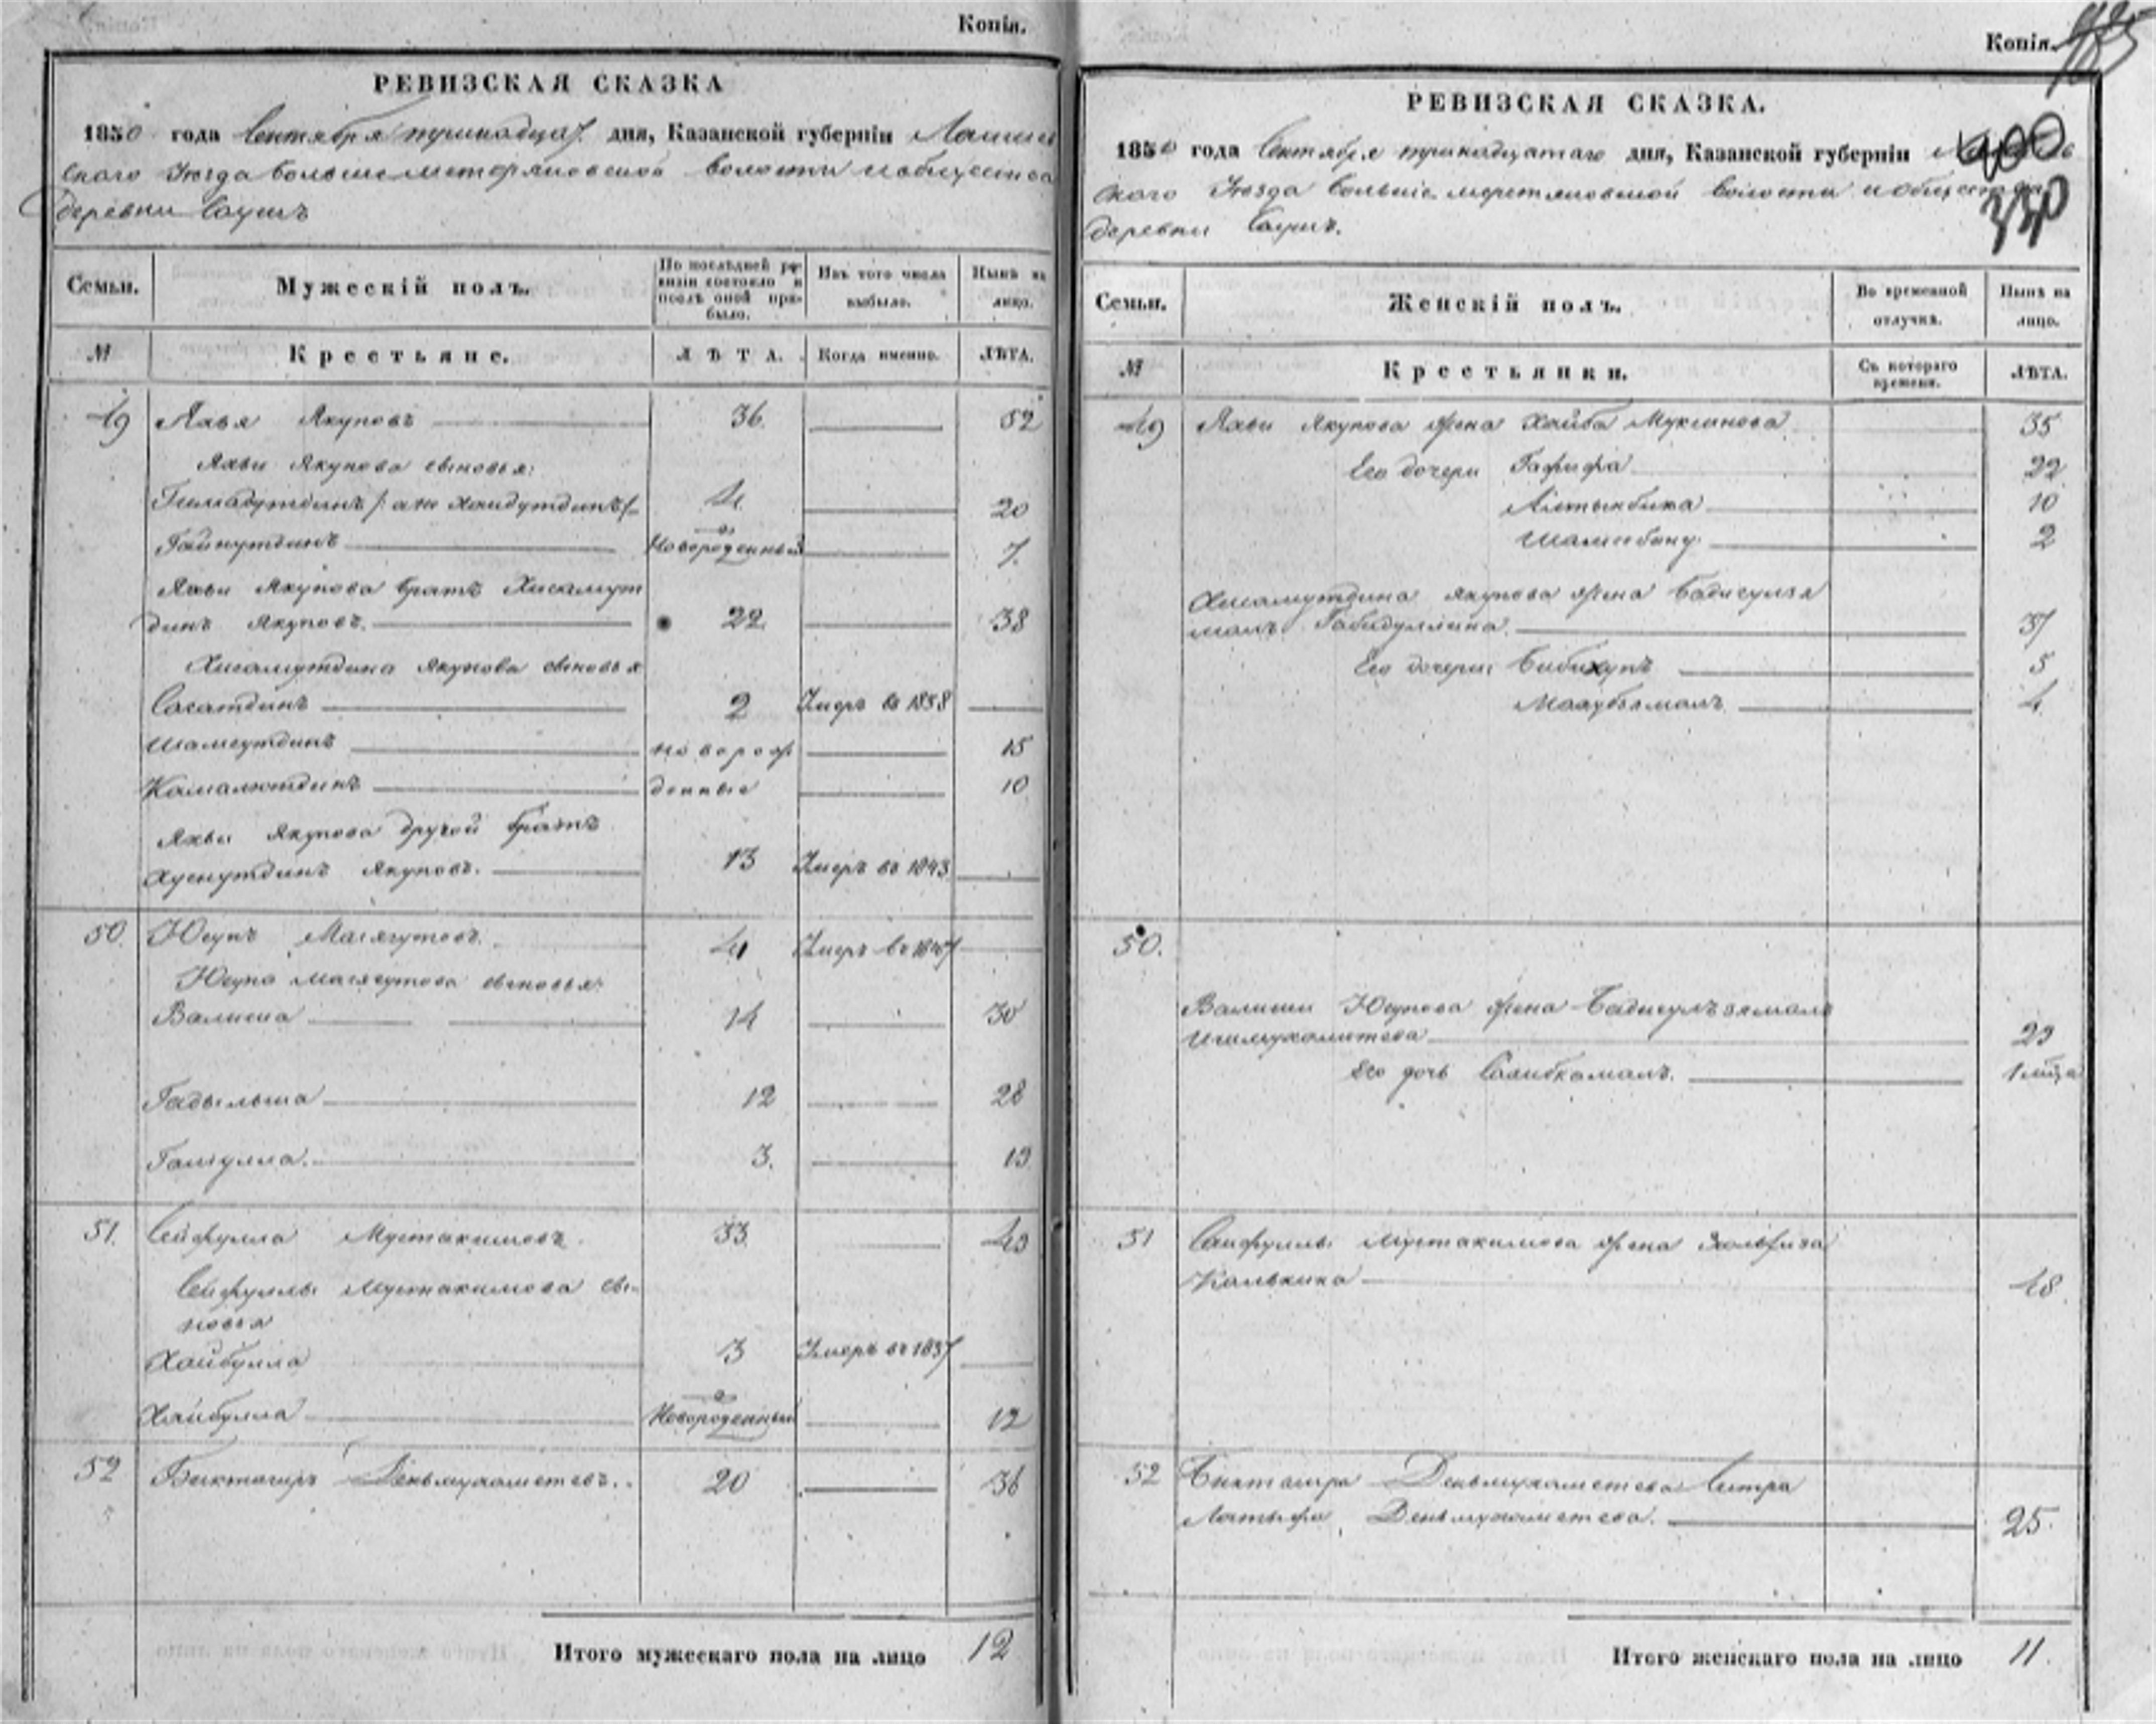 Копія.
РЕВИЗСКАЯ СКАЗКА
1850 года Сентября тринадцат. дня, Казанской губерніи Лаишев
скаго Уезда Большеметеряковской волости и общества
деревни Сауш
Семьи.
Мужескій полъ.
По послѣдней ре
визіи состояло и
послѣ оной при-
было.
Изъ того числа
выбыло.
Нынѣ на
лицо.
№
Крестьяне.
ЛѢТА.
Когда именно.
ЛѢТА.
49 Яхья Якуповъ 36. 52
Яхьи Якупова сыновья:
4 20
Гайнутдинъ Новорожденный 7.
Яхьи Якупова братъ Хисамут
динъ Якуповъ. 22. 38
Хисамутдина Якупова сыновья
Сагатдинъ 2 Умеръ въ 1838
Шамсутдинъ новорож 15
Камалютдинъ денные 10
Яхьи Якупова другой братъ
Хуснутдинъ Якуповъ. 13 Умеръ въ 1843
50. Юсупъ Масягутовъ. 41 Умеръ въ 1847
Юсупа Масягутова сыновья:
Валиша 14 30
Гадыльша 12 28
Галиулла. 3. 19
51. Сейфулла Мустакимовъ. 33 49
Сейфуллы Мустакимова сы-
новья
Хайбулла 3 Умеръ въ 1837
Хайбулла Новорожденный 12
52 Биктагиръ Деньмухаметевъ. 20 36
Итого мужескаго пола на лицо 12
Копія.
РЕВИЗСКАЯ СКАЗКА.
1850 года Сентября тринадцатаго дня, Казанской губерніи
скаго Уезда Больше меретяковской волости и общества
деревни Саушъ.
Семьи.
Женскій полъ.
Во временной
отлучкѣ.
Нынѣ на
лицо.
№
Крестьянки.
Съ котораго
времени.
ЛѢТА.
49 Яхьи Якупова жена Хайба Муксинова 35
Его дочери Гафифа 22
Алтынбика 10
Шамсебану 2
Хисамутдина Якупова жена Бадигулзя
малъ Габидуллина. 37
Его дочери: Бибикупъ 5
Махубзямалъ 4
50.
Валиши Юсупова жена Бадигулъзямалъ
Ишмухаметева 29
Его дочь Сахибкамалъ. 1 мѣца
51 Сейфуллы Мустакимова жена
Калькина 48
52 Биктагира Деньмухаметева сестра
Латыфа Деньмухаметева. 25.
Итого женскаго пола на лицо 11.